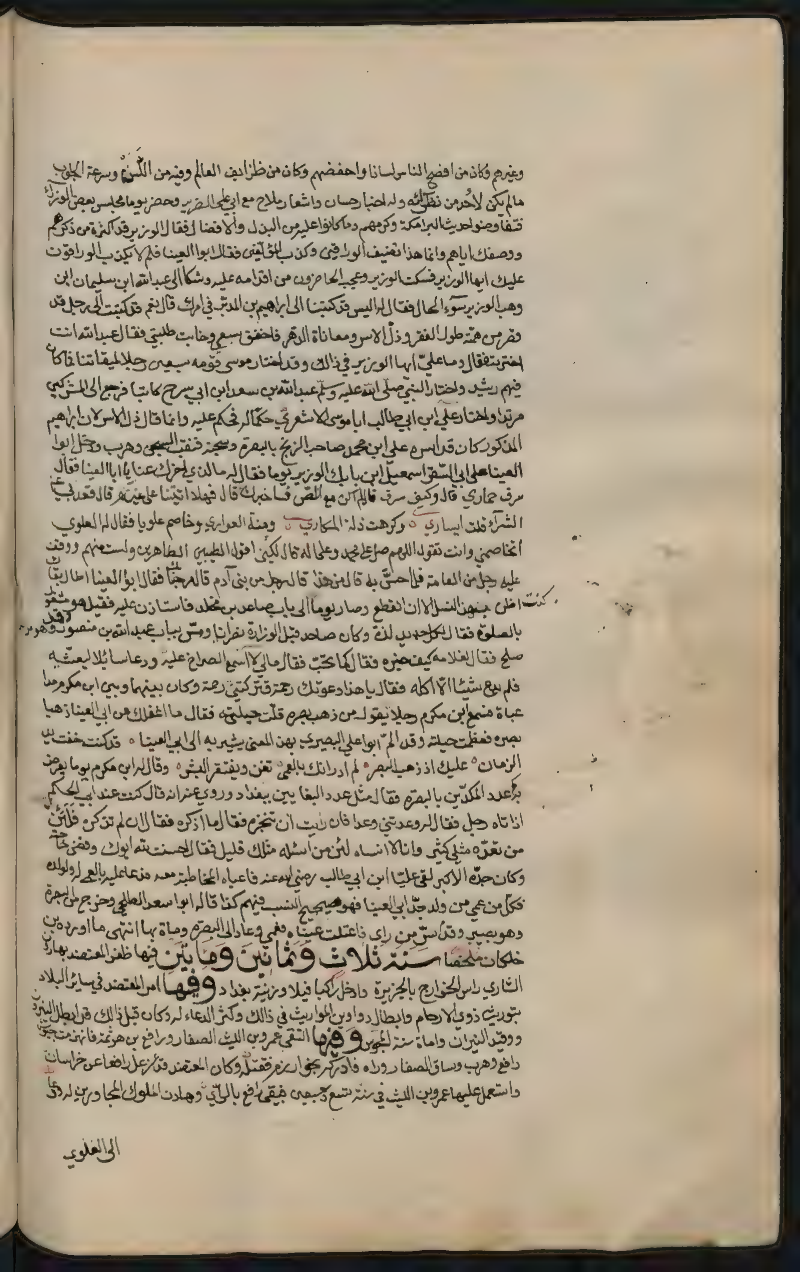 وغيرهم وكان من افصح الناس لسانا واحفضهم وكان من ظرائف العالم وفيه من اللسن وسرعة الجواب
مالم يكن لاحد من نظرائه وله اخبار حسان واشعار ملاح مع ابي علي الضرير وحضر يوما مجلس بعض الوزراء
فتفاوضوا حديث البرامكة وكرمهم وما كانوا عليه من البذل والافضال فقال الوزير قد اكثرت من ذكرهم
ووصفك اياهم وانما هذا تصنيف الوراقين وكذب المؤلفين فقال ابوا العينا فلم لا يكذب الوراقون
عليك ايها الوزير فسكت الوزير وعجب الحاضرون من اقدامه عليه وشكا الى عبد الله ابن سليمان ابن
وهب الوزير سوء الحال فقال له اليس قد كتبنا الى ابراهيم بن المدبر في امرك قال نعم قد كتبت الى رجل قد
قصر من همته طول الفقر وذل الاسر ومعاناة الدهر فاخفق سعيي وخابت طلبتي فقال عبد الله انت
اخترته فقال وما علي ايها الوزير في ذالك وقد اختار موسى قومه سبعين رجلا لميقاتنا فما كان
فيهم رشيد واختار النبي صلى الله عليه وسلم عبد الله بن سعد ابن ابي سرح كاتبا فرجع الى المشركين
مرتدا واختار علي ابن ابي طالب ابا موسى الاشعري حكما له فحكم عليه وانما قال ذل الاسر لان ابراهيم
المذكور كان قد اسره علي ابن محمد صاحب الزنج بالبصرة وسجنه فنقب السجن وهرب ودخل ابوا
العينا على ابي الصقر اسمعيل ابن بابك الوزير يوما فقال له ما الذي اخرك عنا يا ابا العينا فقال
سرق حماري قال وكيف سرق قال لم اكن مع اللص فاخبرك قال فهلا اتيتنا على غيره قال قعد بي عن
الشراء قلت ايساري وكرهت ذلة المكاري ومنة العواري وخاصم علويا فقال له العلوي
اتخاصمني وانت تقول اللهم صل على محمد وعلى اله قال لكني اقول الطيبين الطاهرين ولست منهم ووقف
عليه رجل من العامة فلما احس به قال من هذا قال رجل من بني آدم قال مرحبا فقال ابوا العينا اطال بقاك
كنت اظن هذا النسل الا ان انقطع وصار يوما الى باب صاعد بن مخلد فاستاذن عليه فقيل هو مشغول
بالصلوة فقال لكل جديد لذة وكان صاعد قبل الوزارة نصرانيا ومر بباب عبد الله بن منصور وقد
صلح فقال لغلامه كيف خبره فقال كما تحب فقال مالي لا اسمع الصراخ عليه ودعا سائلا ليعشيه
فلم يدع شيئا الا اكله فقال يا هذا دعوتك رحمة فتركتني رحمة وكان بينه وبين ابن مكرم مدا
عباة فسمع ابن مكرم رجلا يقول من ذهب بصره قلت حيلته فقال ما اغفلك عن ابي العينا ذهب
بصره فعظمت حيلته وقد الم ابوا علي البصيري بهذا المعنى يشير به الى ابي العينا قد كنت خفت يد
الزمان عليك اذ ذهب البصر لم ادر انك بالعمى تغنى ويفتقر البشر وقال له ابن مكرم يوما يعرض
به كم عدد المكدين بالبصرة فقال مثل عدد البغايين ببغداد وروي عنه انه قال كنت عند ابي الحكم
اذ اتاه رجل فقال له وعدتني وعدا فان رايت ان تنجزه فقال ما اذكره فقال ان لم تذكره فلان
من تعده مثلي كثير وانا لا انساه لان من اسئله مثلك قليل فقال احسنت لله ابوك وقضى حاجته
وكان جده الاكبر لقي عليا ابن ابي طالب رضي الله عنه فاساء المخاطبة معه فدعا عليه بالعمى له ولولده
فكل من عمي من ولد جد ابي العينا فهو صحيح النسب فيهم كذا قاله ابوا سعد الطالبي وخرج من البصرة
وهو بصير وقدم سر من راى فاعتلت عيناه فعمي وعاد الى البصرة ومات بها انتهى ما اورده بن
خلكان ملخصا سنة ثلاث وثمانين ومايتين فيها ظفر المعتضد بهارون
الشاري راس الخوارج بالجزيرة وادخل راكبا فيلا وزينة بغداد وفيها امر المعتضد في سائر البلاد
بتوريث ذوي الارحام وابطال دواوين المواريث في ذالك وكثر الدعاء له وكان قبل ذالك قد ابطل النيروز
ووقيد النيران وامات سنة المجوس وفيها التقى عمرو بن الليث الصفار ورافع بن هرثمة فانهزمت جيوش
رافع وهرب وساق الصفار وراه فادركه بخوارزم فقتله وكان المعتضد قد عزل رافعا عن خراسان
واستعمل عليها عمرو بن الليث في سنة تسع وسبعين فبقي رافع بالري وهادن الملوك المجاورين له ودعا
الى العلوي